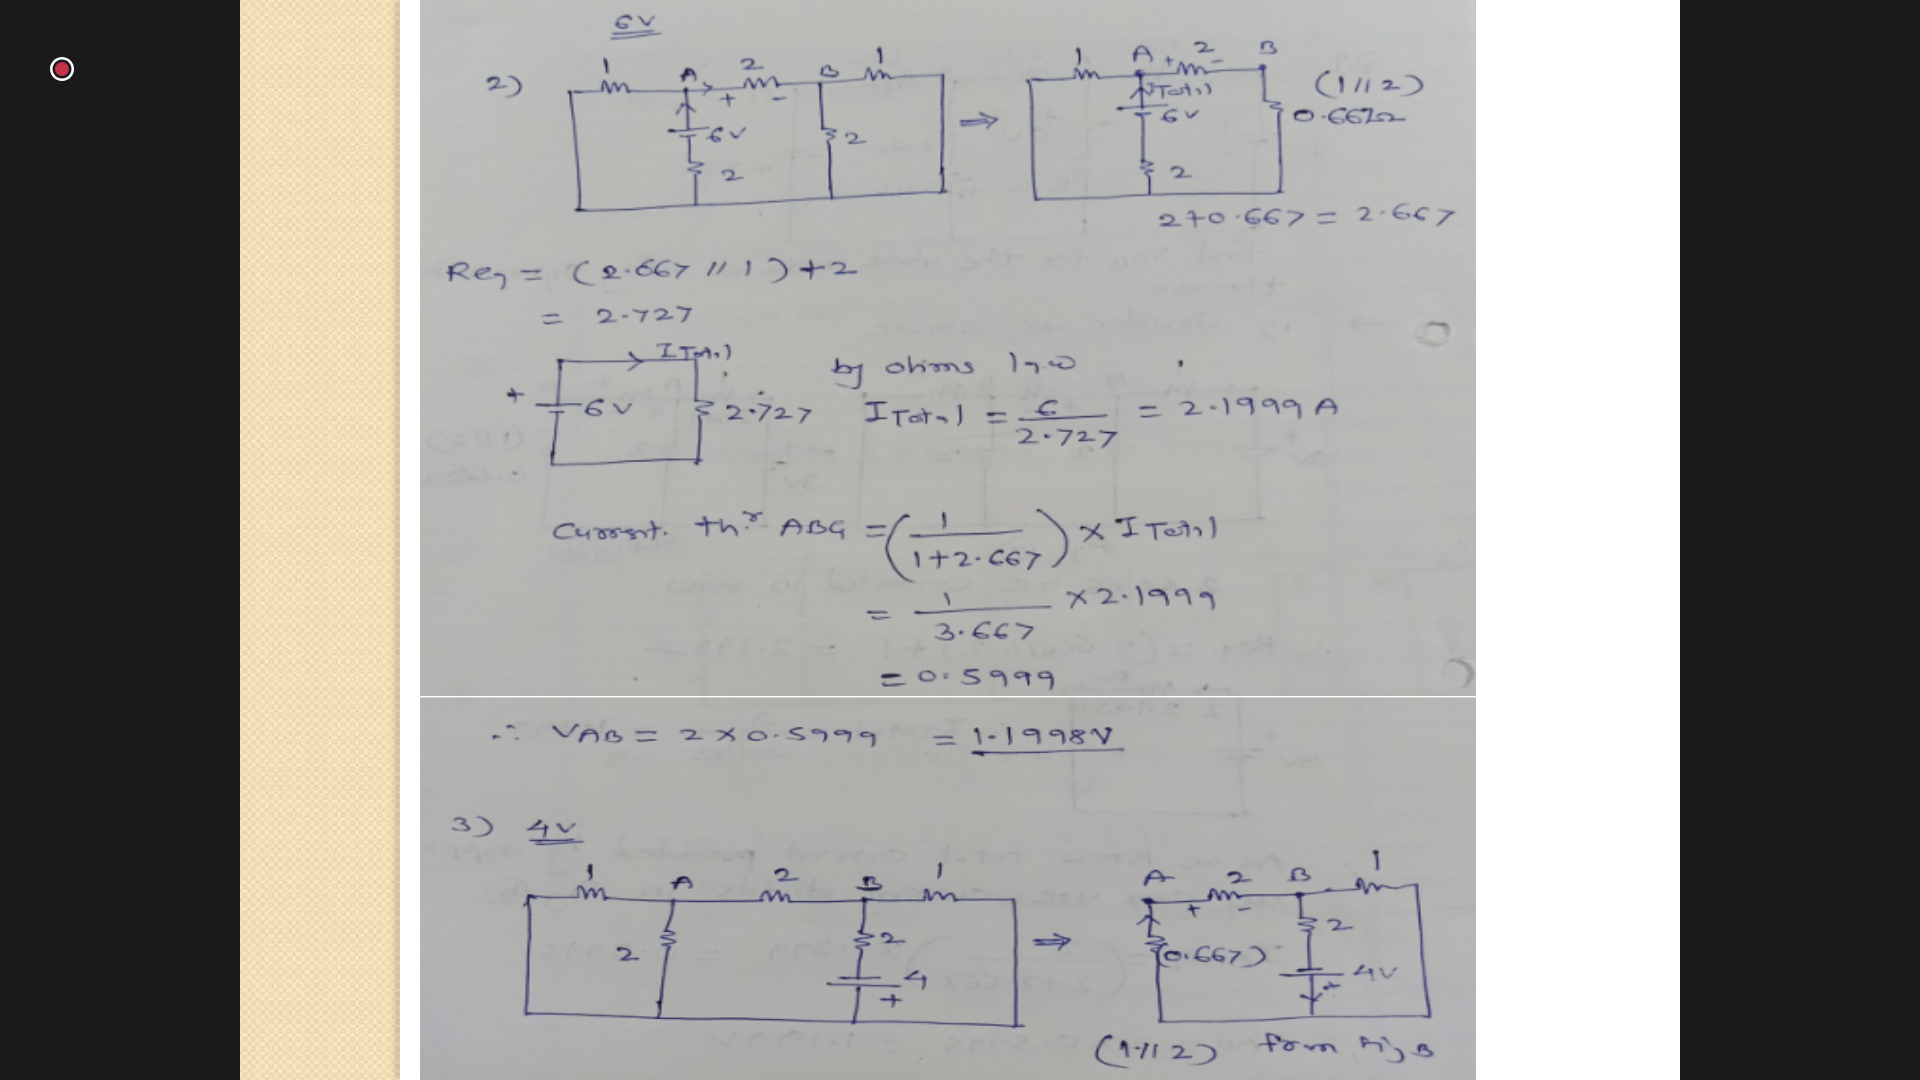 6V
2)
1 A 2 B 1
+ -
6V 2
2
⇒
1 A + 2 - B
ITotal
6V
2
(1 // 2)
0.667Ω
2+0.667 = 2.667
Req = (2.667 // 1) + 2
= 2.727
ITotal
+ 6V 2.727
by ohms law
ITotal = 6/2.727 = 2.1999 A
Current. thr ABG = (1/(1+2.667)) × ITotal
= 1/3.667 × 2.1999
= 0.5999
∴ VAB = 2 × 0.5999 = 1.1998V
3) 4V
1 A 2 B 1
2 2
4
+
⇒
A 2 B 1
+ -
2
(0.667)
4V
+
(1 // 2) from fig B